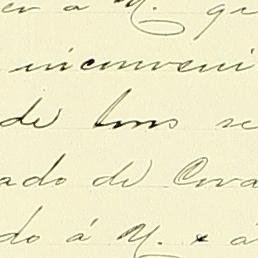 er á M. qu
inconveni
de los se
ado de Cora
do á M. x á